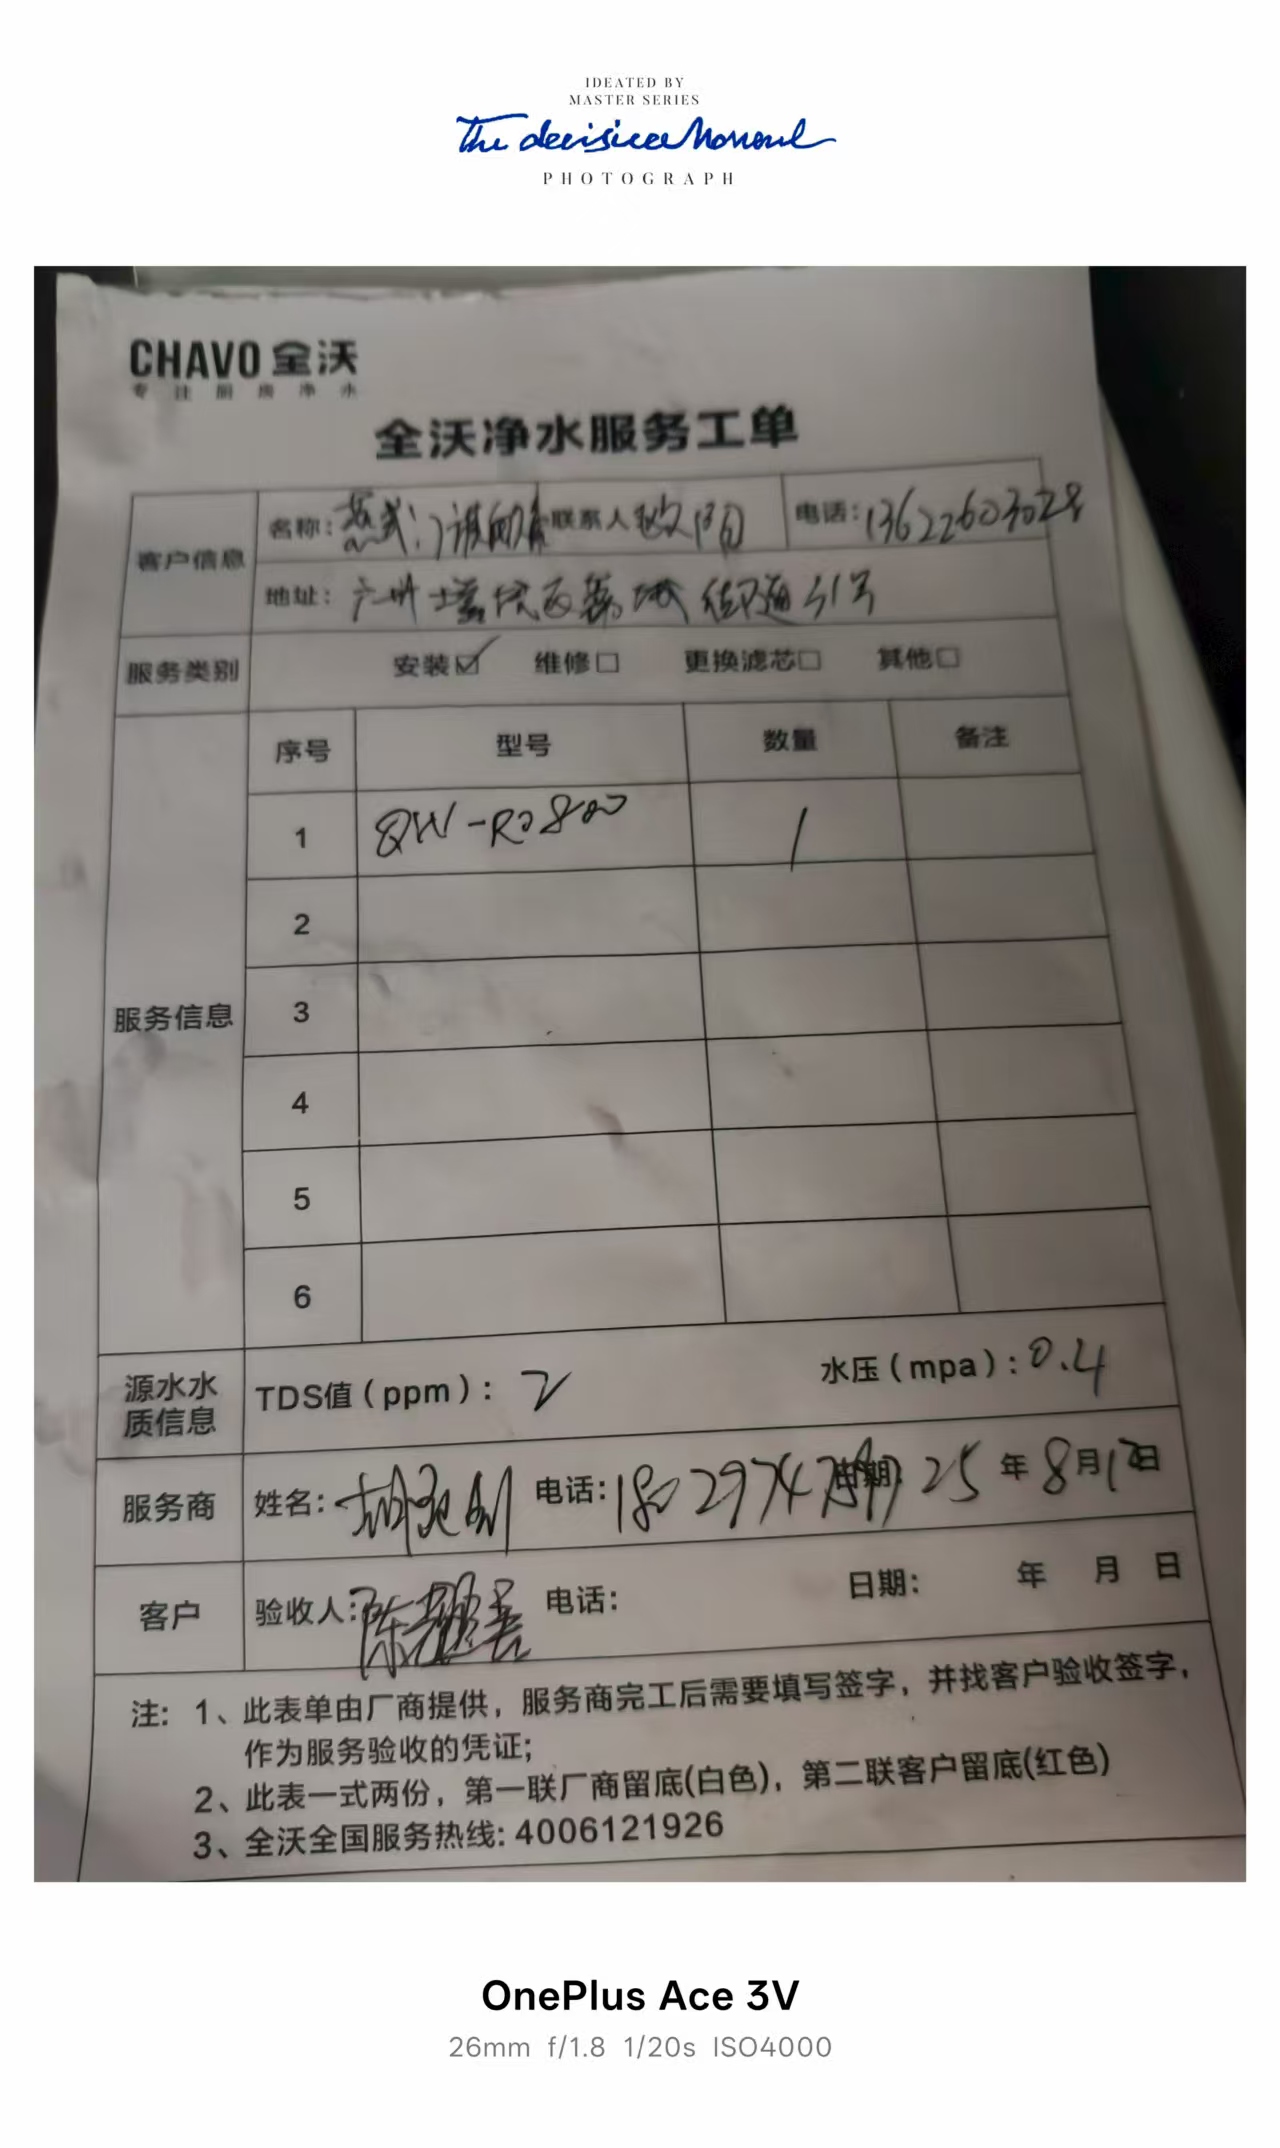 IDEATED BY
MASTER SERIES
The decisive Moment
PHOTOGRAPH
CHAVO 全沃
专注厨房净水
全沃净水服务工单
客户信息 名称: 联系人 电话:13622603028
地址: 广州增城区荔城街道31号
服务类别 安装☑ 维修□ 更换滤芯□ 其他□
服务信息 序号 型号 数量 备注
1 QW-RO800 1
2
3
4
5
6
源水水质信息 TDS值(ppm): 2 水压(mpa):0.4
服务商 姓名: 电话: 日期: 25年8月12日
客户 验收人: 陈 电话: 日期: 年 月 日
注: 1、此表单由厂商提供,服务商完工后需要填写签字,并找客户验收签字,
作为服务验收的凭证;
2、此表一式两份,第一联厂商留底(白色),第二联客户留底(红色)
3、全沃全国服务热线: 4006121926
OnePlus Ace 3V
26mm f/1.8 1/20s ISO4000